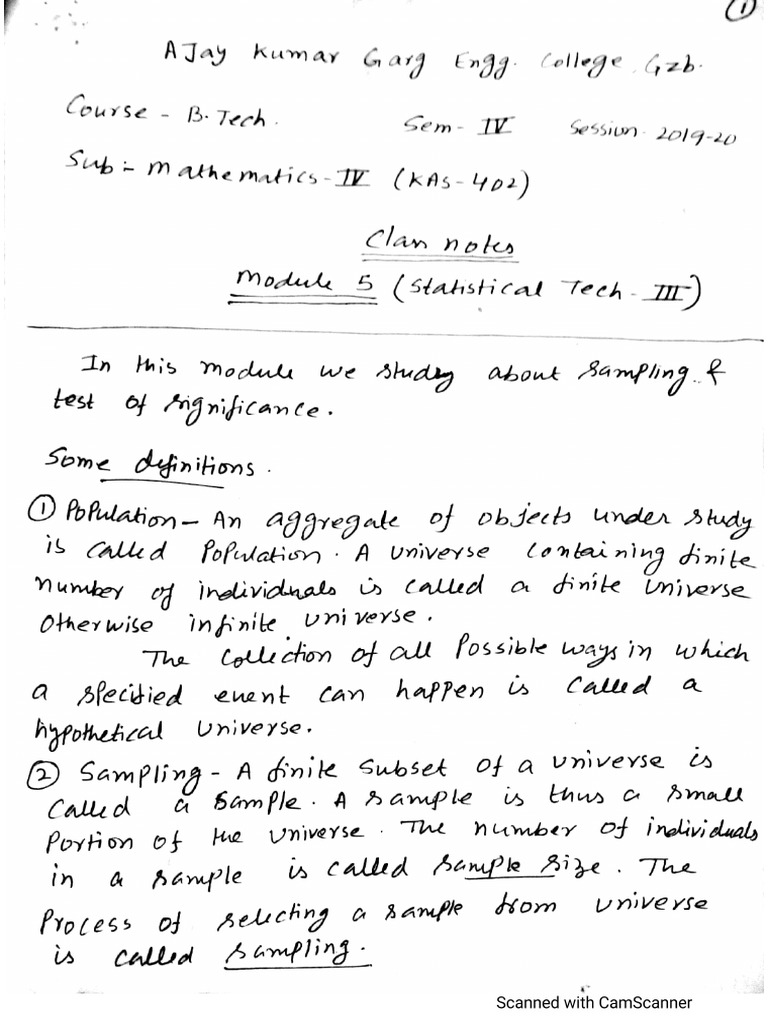 1
AJay Kumar Garg Engg. College, Gzb.
Course - B.Tech. Sem- IV Session- 2019-20
Sub:- Mathematics-IV (KAS-402)
Class notes
Module 5 (Statistical Tech- III)
In this module we study about sampling &
test of significance.
Some definitions.
① Population- An aggregate of objects under study
is called Population. A universe containing finite
number of individuals is called a finite universe
otherwise infinite universe.
The collection of all Possible ways in which
a specified event can happen is called a
hypothetical universe.
② Sampling - A finite subset of a universe is
called a sample. A sample is thus a small
portion of the universe. The number of individuals
in a sample is called sample size. The
Process of selecting a sample from universe
is called sampling.
Scanned with CamScanner